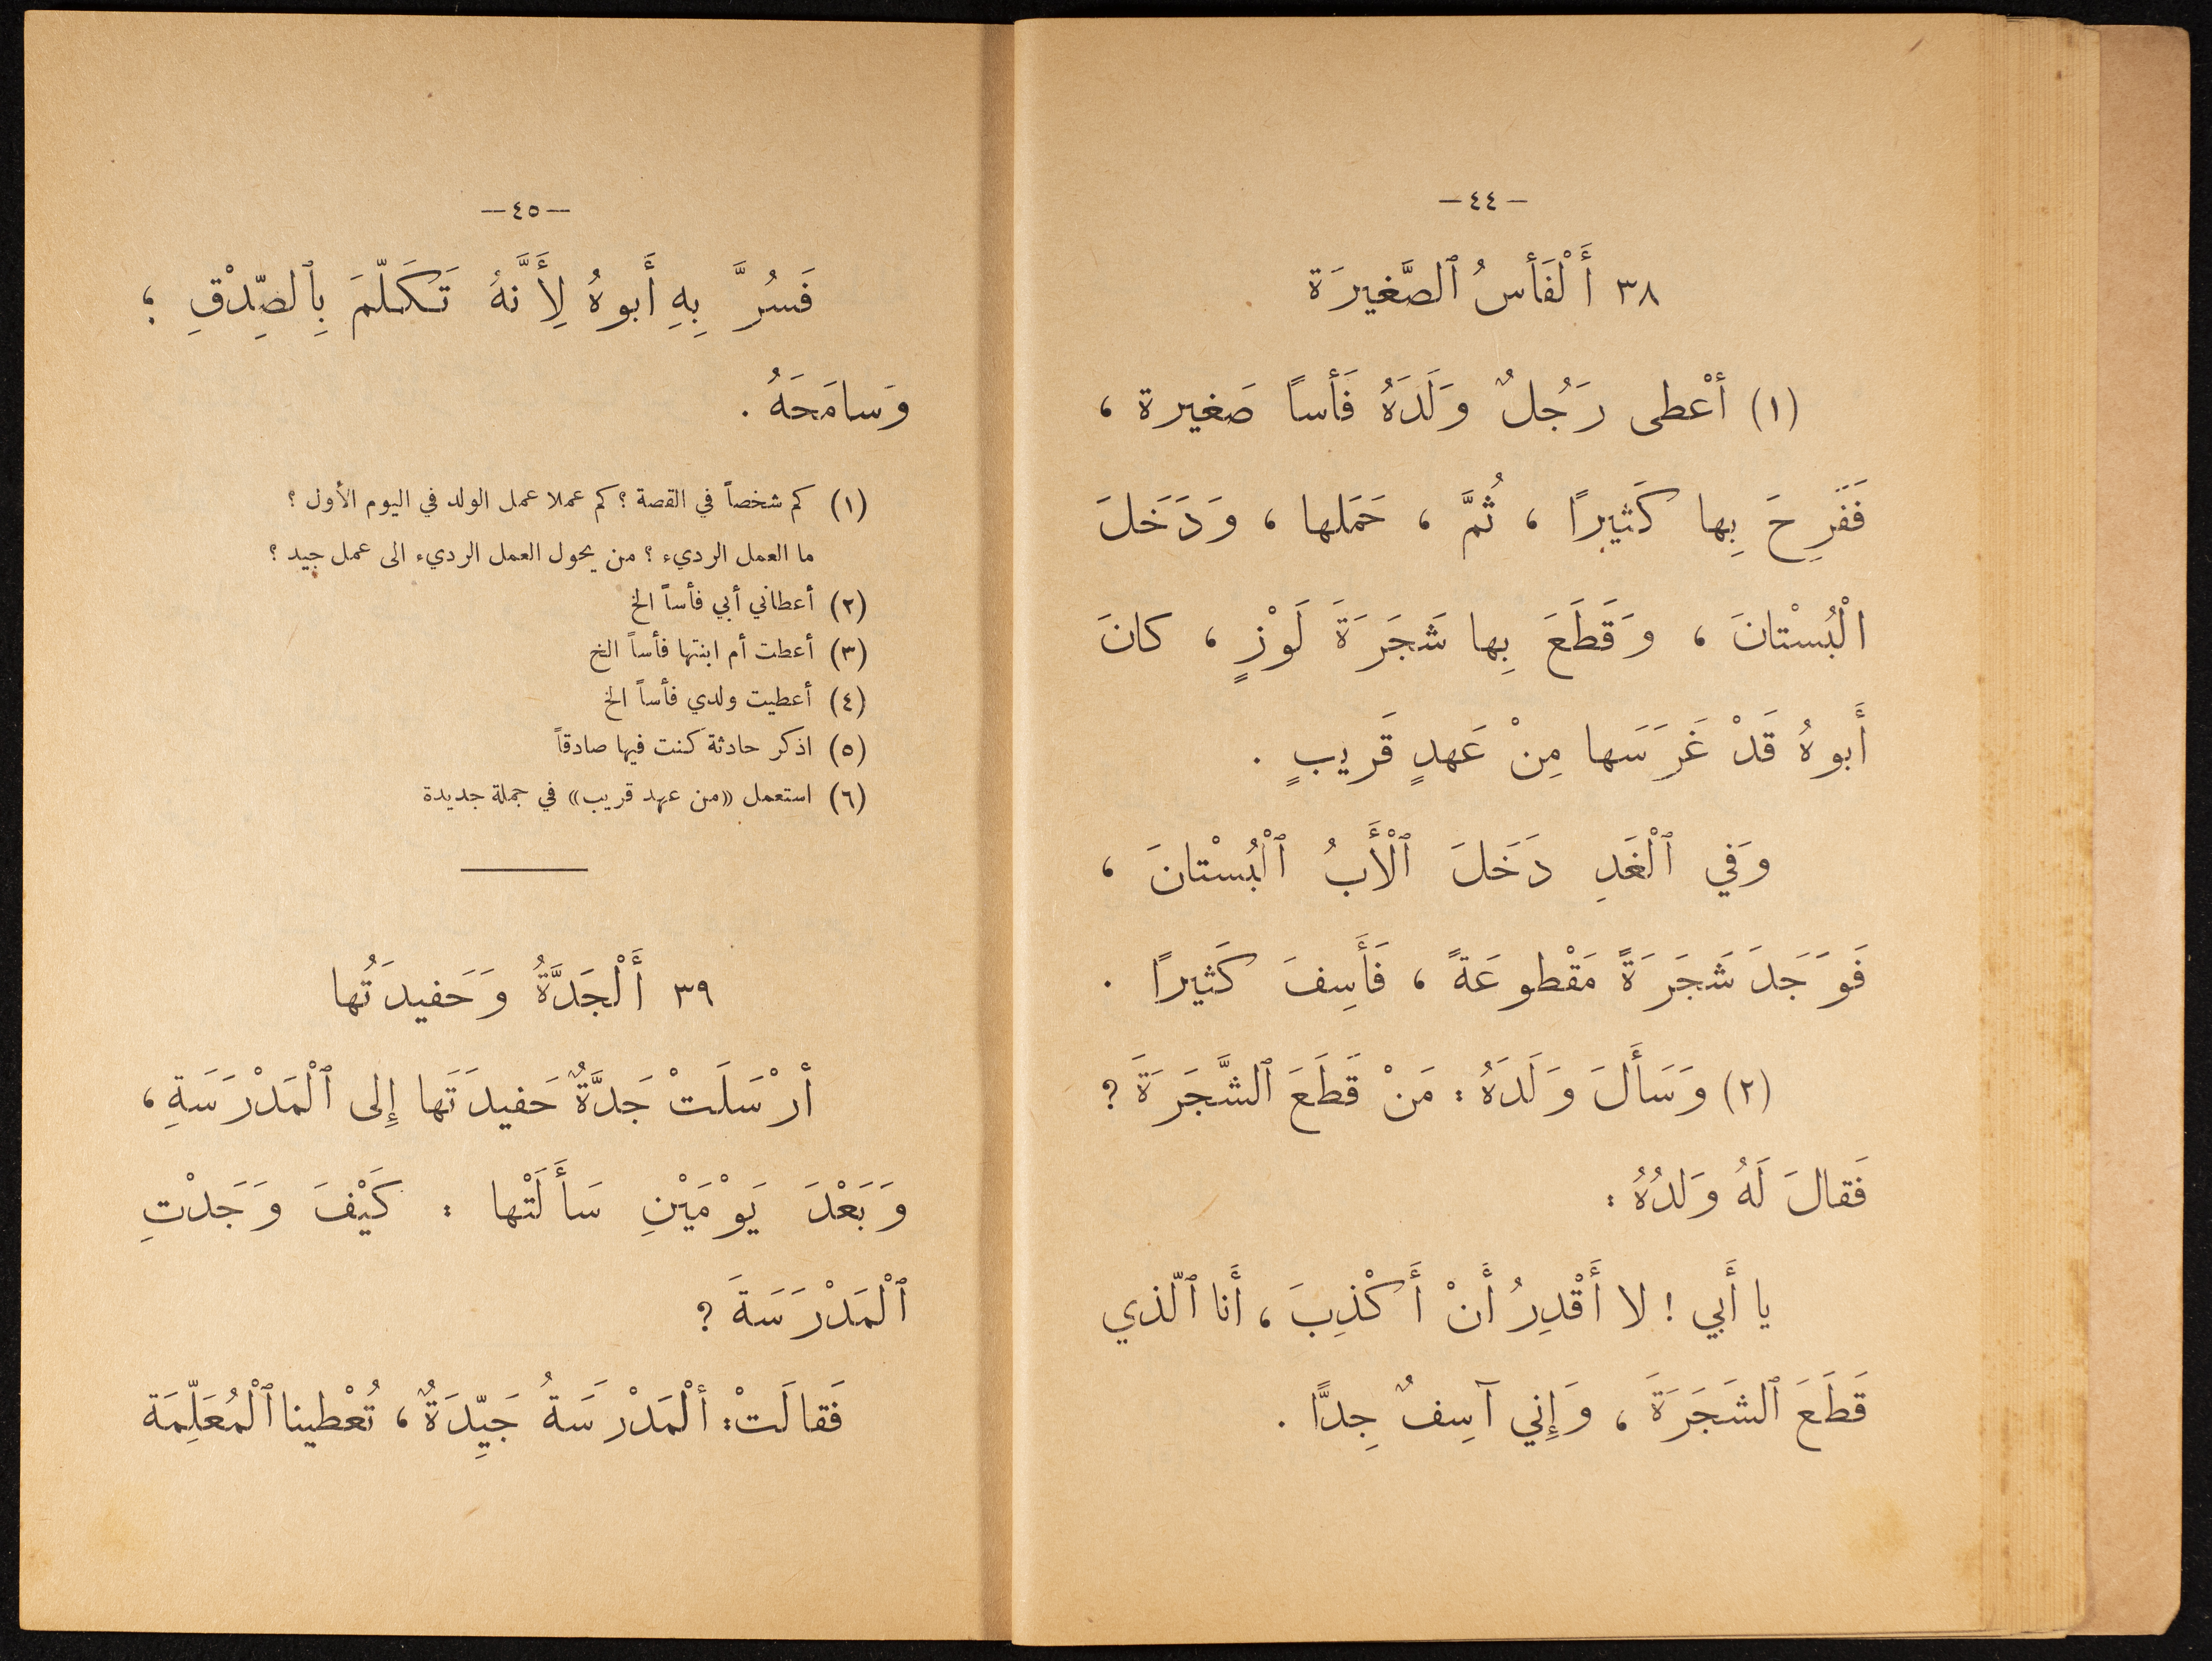 — ٤٤ —
٣٨ أَلْفَأسُ ٱلصَّغيرَة
(١) أعْطى رَجُلٌ وَلَدَهُ فَأساً صَغيرة ،
فَفَرِحَ بِها كَثيرًا ، ثُمَّ ، حَمَلها ، وَدَخَلَ
الْبُسْتانَ ، وَقَطَعَ بِها شَجَرَةَ لَوْزٍ ، كانَ
أَبوهُ قَدْ غَرَسَها مِنْ عَهدٍ قَريبٍ .
وَفي ٱلْغَدِ دَخَلَ ٱلْأَبُ ٱلْبُسْتانَ ،
فَوَجَدَ شَجَرَةً مَقْطوعَةً ، فَأَسِفَ كَثيرًا .
(٢) وَسَأَلَ وَلَدَهُ : مَنْ قَطَعَ ٱلشَّجَرَةَ ؟
فَقالَ لَهُ وَلدُهُ :
يا أَبي ! لا أَقْدِرُ أَنْ أَكْذِبَ ، أَنا ٱلّذي
قَطَعَ ٱلشَجَرَةَ ، وَإِني آسِفٌ جِدًّا .
— ٤٥ —
فَسُرَّ بِهِ أَبوهُ لِأَنَّهُ تَكَلّمَ بِٱلصِّدْقِ ؛
وَسامَحَهُ .
(١) كم شخصاً في القصة ؟ كم عملا عمل الولد في اليوم الأول ؟
ما العمل الرديء ؟ من يحول العمل الرديء الى عمل جيد ؟
(٢) أعطاني أبي فأساً الخ
(٣) أعطت أم ابنتها فأساً الخ
(٤) أعطيت ولدي فأساً الخ
(٥) اذكر حادثة كنت فيها صادقاً
(٦) استعمل «من عهد قريب» في جملة جديدة
٣٩ أَلْجَدَّةُ وَحَفيدَتُها
أرْسَلَتْ جَدَّةٌ حَفيدَتَها إِلى ٱلْمَدْرَسَةِ ،
وَبَعْدَ يَوْمَيْنِ سَأَلَتْها : كَيْفَ وَجَدْتِ
ٱلْمَدْرَسَةَ ؟
فَقالَتْ : ألْمَدْرَسَةُ جَيِّدَةٌ ، تُعْطينا ٱلْمُعَلِّمَة